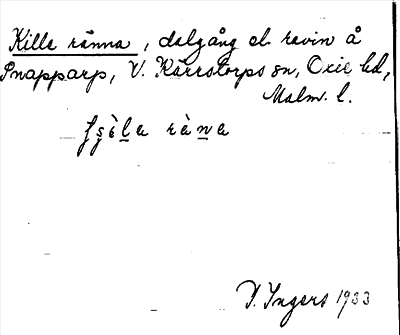 Kille ränna, dalgång el. ravin å
Snapparp, V. Kärrstorps sn, Oxie hd,
Malm. l.
rä̀na
I. Ingers 1933